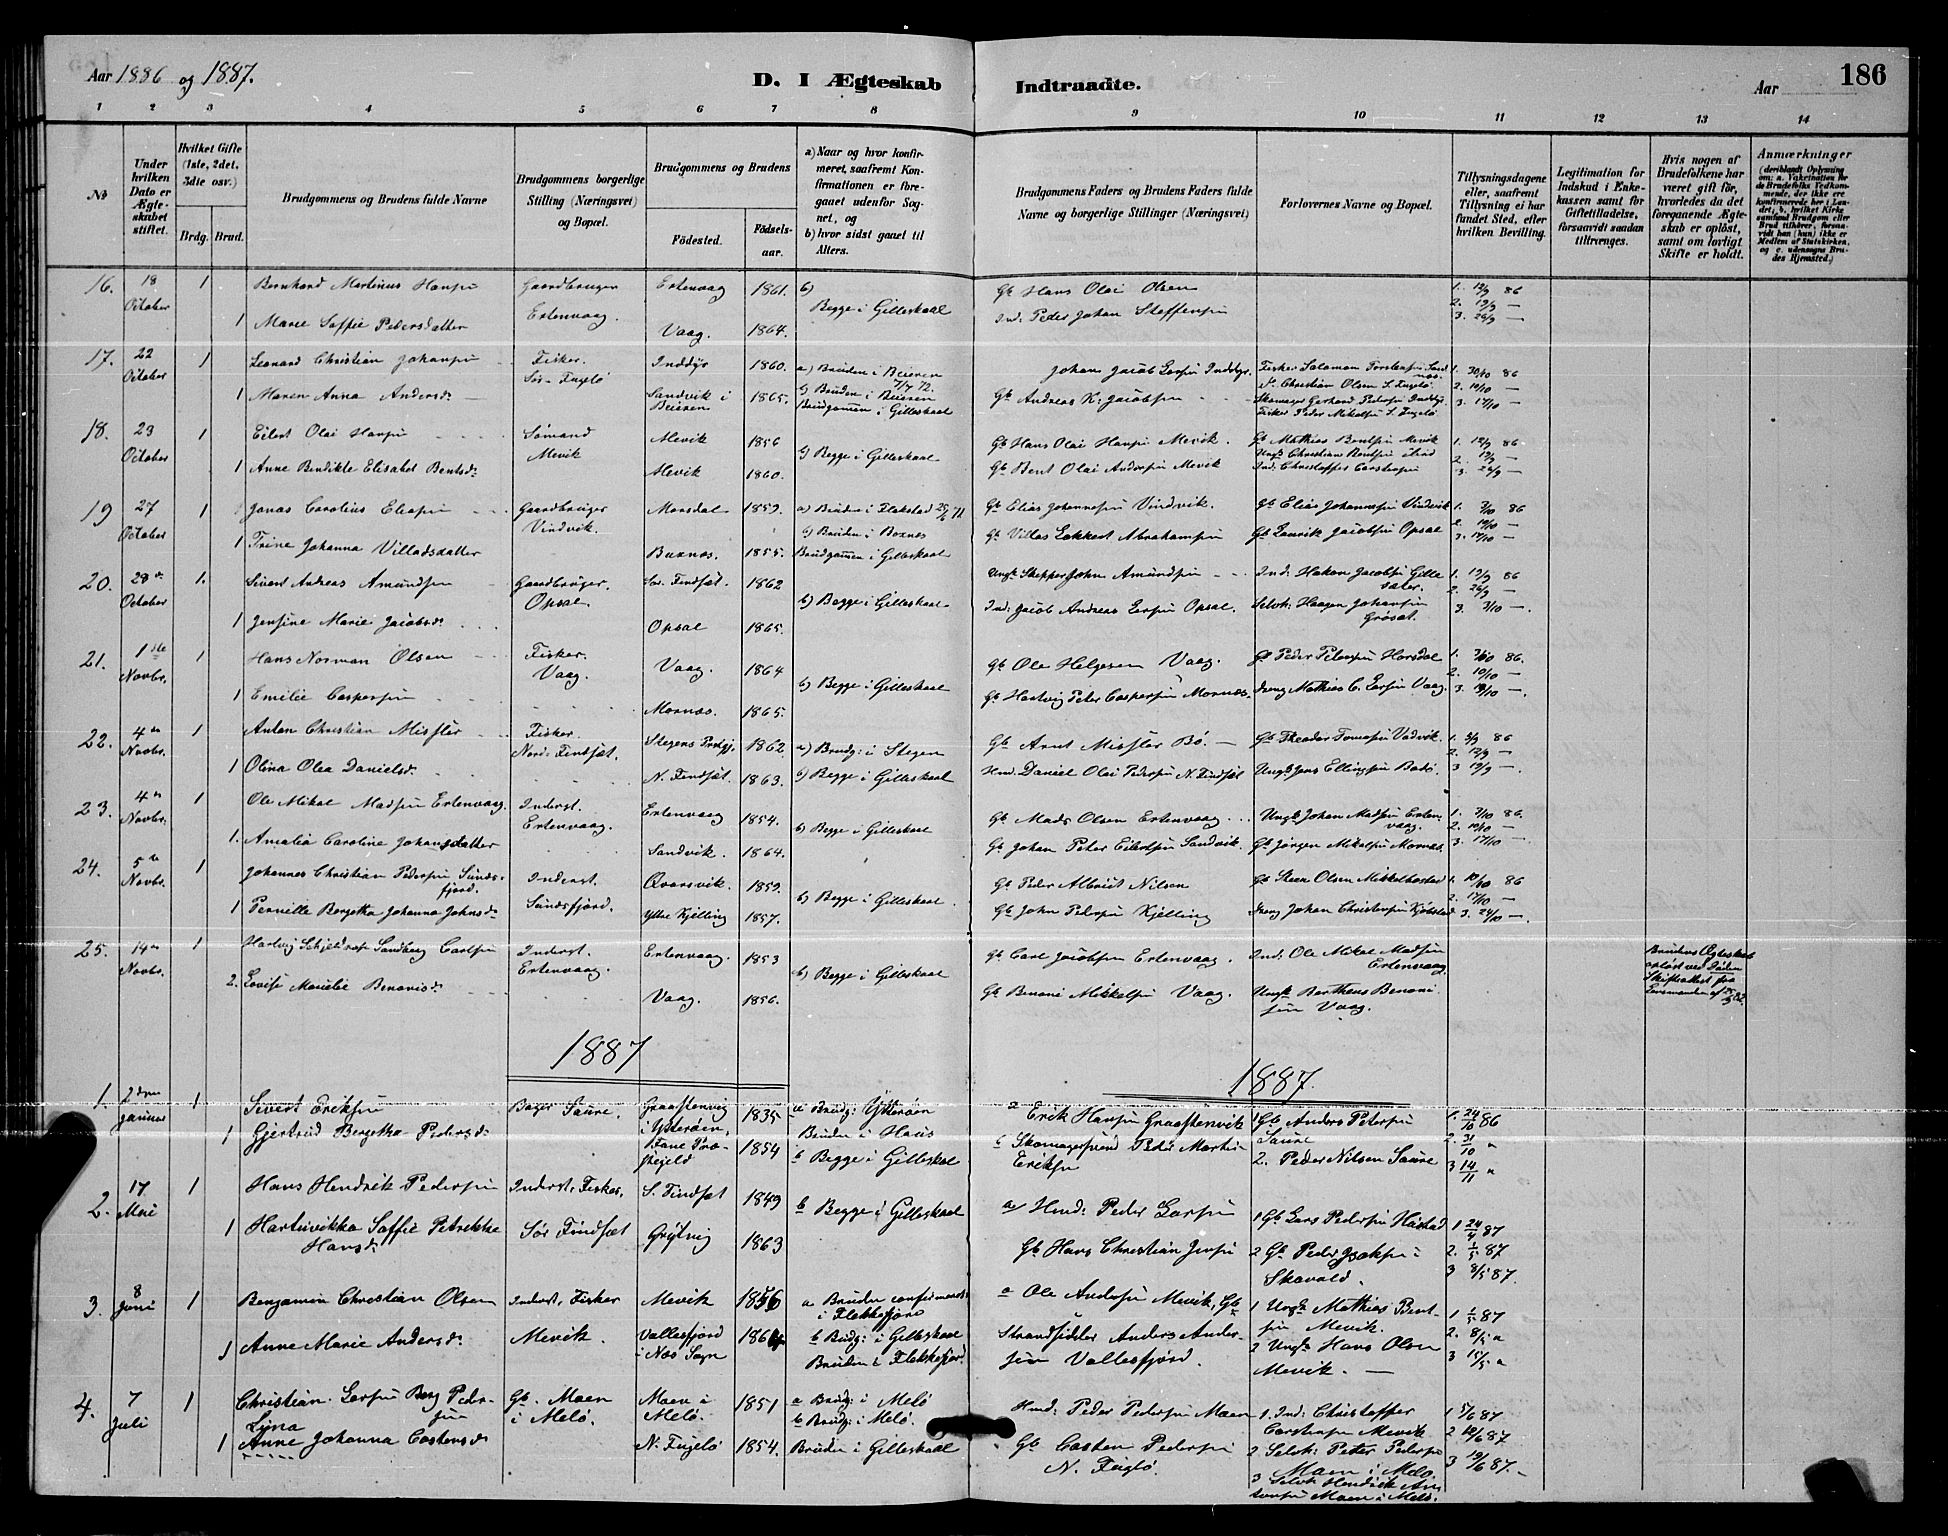 Aar 1886 og 1887.
D. I Ægteskab
Indtraadte.
Aar
186
1 2 3 4 5 6 7 8 9 10 11 12 13 14
No
Under hvilken Dato er Ægteskabet stiftet.
Hvilket Gifte (1ste, 2det, 3die osv.)
Brdg. Brud.
Brudgommens og Brudens fulde Navne
Brudgommens borgerlige Stilling (Næringsvei) og Bopæl.
Brudgommens og Brudens
Födested. Födselsaar.
a) Naar og hvor konfirmeret, saafremt Konfirmationen er foregaaet udenfor Sognet, og
b) hvor sidst gaaet til Alters.
Brudgommens Faders og Brudens Faders fulde Navne og borgerlige Stillinger (Næringsvei)
Forlovernes Navne og Bopæl.
Tillysningsdagene eller, saafremt Tillysning ei har fundet Sted, efter hvilken Bevilling.
Legitimation for Indskud i Enkekassen samt for Giftetilladelse, forsaavidt saadan tiltrænges.
Hvis nogen af Brudefolkene har været gift för, hvorledes da det foregaaende Ægteskab er oplöst, samt om lovligt Skifte er holdt.
Anmærkninger
16. 18 October 1 Bernhard Martinus Hansen Gaardbruger Ertenvaag Ertenvaag 1861. b) Begge i Gilleskaal Gb Hans Olai Olsen 1. 12/9 86
1 Marie Soffie Pedersdatter Vaag. 1864. Ind: Peder Johan Steffensen 2. 19/9 — 3. 26/9 —
17. 22 October 1 Leonard Christian Johansen Fisker. Sör-Fuglö Inddyr 1860. a) Bruden i Beieren Johan Jacob Larsen Inddyr.
1 Maren Anna Andersd. Sandvik i Beieren 1865. b) Bruden i Beieren Brudgommen i Gilleskaal Gb Andreas K: Jacobsen 2. 10/10 — 3. 17/10 —
18. 23 October 1 Eilert Olai Hansen Sömand Mevik Mevik 1856 b) Begge i Gilleskaal Gb Hans Olai Hansen Mevik. Gb Mathias Bentsen Mevik 1. 12/9 86
1 Anne Bendikte Elisabet Bentsd. Mevik 1860. Gb Bent Olai Andersen Mevik Ind. Christoffer Carstensen 2. 19/9 3. 26/9 —
19 27 October 1 Jonas Carolius Eliasen Gaardbruger Vindvik. Morsdal 1859. a) Bruden i Flakstad Gb Elias Johannesen Vindvik. Gb Elias Johannesen Vindvik 1. 3/10 86
1 Trine Johanna Villadsdatter Buxnes. 1855. b) Bruden i Boxnes Brudgommen i Gilleskaal Gb Villas Lokkert Abrahamsen Gb Laurik Jacobsen Opsal 2. 10/10 — 3. 17/10 —
20. 28de October 1. Sivert Andreas Amundsen Gaardbruger. Opsal Sör. Findset. 1862 b) Begge i Gilleskaal Ungk Skipper John Amundsen Ind: Hakon Jacobsen Gillesæter. 1. 19/9 86
1 Jensine Marie Jacobsd. Opsal 1865. Ind: Jacob Andreas Larsen Opsal. Selvk: Haagen Johansen Grøset. 2. 26/9 — 3. 3/10 —.
21. 1ste Novbr. 1 Hans Norman Olsen Fisker. Vaag. Vaag. 1864 b) Begge i Gilleskaal Gb Ole Helgesen Vaag. Gb Peder Petersen Horsdal 1. 3/10 86.
1 Emilie Caspersen Mornæs. 1865. Gb Hartvig Peter Caspersen Mornæs. Dreng Mathias C. Larsen Vaag. 2. 10/10 — 3.
22. 4de Novbr. 1 Anton Christian Misfler Fisker. Nord: Findset. Stegens Prstgj. 1862. a) Brudg: i Stegen Gb Arnt Misfler Bö. — Gb Theodor Tomasen Vadvik. 1. 5/9 86
1 Olina Olea Danielsd. N. Findset. 1863. b) Begge i Gilleskaal Hmd. Daniel Olai Pedersen N. Findset Ungk Jens Ellingsen Bodö. 2. 12/9 — 3 19/9 —.
23. 4de Novbr. 1 Ole Mikal Madsen Ertenvaag. Inderst. Ertenvaag. Ertenvaag 1854. b) Begge i Gilleskaal Gb Mads Olsen Ertenvaag Ungk Johan Madsen Ertenvaag. 1. 3/10 86.
1. Amalia Caroline Johansdatter Sandvik. 1864. Gb Johan Peter Eilertsen Sandvik. Gb Jörgen Mikalsen Mornæs. 2. 10/10 — 3. 17/10 —
24. 5te Novbr. 1 Johannes Christian Pedersen Sundsfjord. Inderst. Sundsfjord. Qvarsvik. 1859. b) Begge i Gilleskaal Gb Peder Albrigt Nilsen Gb Steen Olsen Mikkelbostad 1. 10/10 86
1 Pernille Bergetha Johanna Johnsd. Ytre Kjelling 1857. Gb John Pedersen Kjelling Dreng Johan Christensen Kjöbstad 2. 17/10 — 3. 24/10 —.
25. 14de Novbr. 1 Hartvig Schjelderup Sandberg Carlsen Inderst. Ertenvaag. Ertenvaag. 1853 b) Begge i Gilleskaal Gb Carl Jacobsen Ertenvaag. Ind. Ole Mikal Madsen Ertenvaag. Brudens Ægteskab oplöst ved Döden Skifteattest fra Lensmanden af
2. Lovise Marielie Benonisd. Vaag. 1856. Gb Benoni Mikkelsen Vaag. Ungk Barthens Benonisen Vaag.
1887
1887.
1. 2den Januar 1 Sivert Eriksen Bager Saure. Graastenvig i Ytteröen, 1835 a Brudg: Ytteröen Bruden i Haus a Erik Hansen Graastenvik 1 Gb Anders Petersen Saure 1. 24/10 86
1 Gjertrud Bergetha Pedersd. Fane Præstegjeld 1854 b Begge i Gilleskaal b Skomagersvend Peder Martin Eriksen 2. Peder Nilsen Saure 2. 31/10 " 3 14/11 "
2. 17 Mai 1 Hans Hendrik Pedersen Inderst, Fisker. Sör Findset S. Findset 1849 b Begge i Gilleskaal a/ Hmd: Peder Larsen 1 Gb Lars Pedersen Hustad 1 24/4 87
1 Hartvikka Soffie Petrikke Hansd. Grytvig 1863 Gb Hans Christian Jensen 2 Gb Peder Isaksen Skavold. 2. 1/5 87 3 8/5 87.
3. 8 Juni 1 Benjamin Christian Olsen Inderst, Fisker Mevik. Mevik 1856 a Bruden confirmeret i Flekkefjord a Ole Andersen Mevik, Gb 1 Ungk Mathias Bentsen Mevik. 1 1/5 87
1 Anne Marie Andersd. Vallesfjord i Næs Sogn 1864 b Brudg: i Gilleskaal Bruden i Flekkefjord. Strandsidder Anders Andersen Vallesfjord. 2 Ungk Hans Olsen Mevik. — 2. 8/5 " 3 15/5 "
4. 7 Juli 1 Christian Larsen Berg Pedersen Gb. Maen i Melö. Maen i Melö. 1851 a Brudg: i Melö b Brudg: i Melö. Hmd: Peder Pedersen Maen 1. Ind: Christoffer Carstensen Mevik 1 5/6 87
1 Lyna Anne Johanna Castensd. N. Fuglö 1854. Bruden i Gilleskaal Gb Casten Pedersen N. Fuglö. 2 Selvk: Petter Pedersen Maen i Melö. 2 12/6 87 3 19/6 87.
3 Selvk Hendrik Antonsen Maen i Melö.